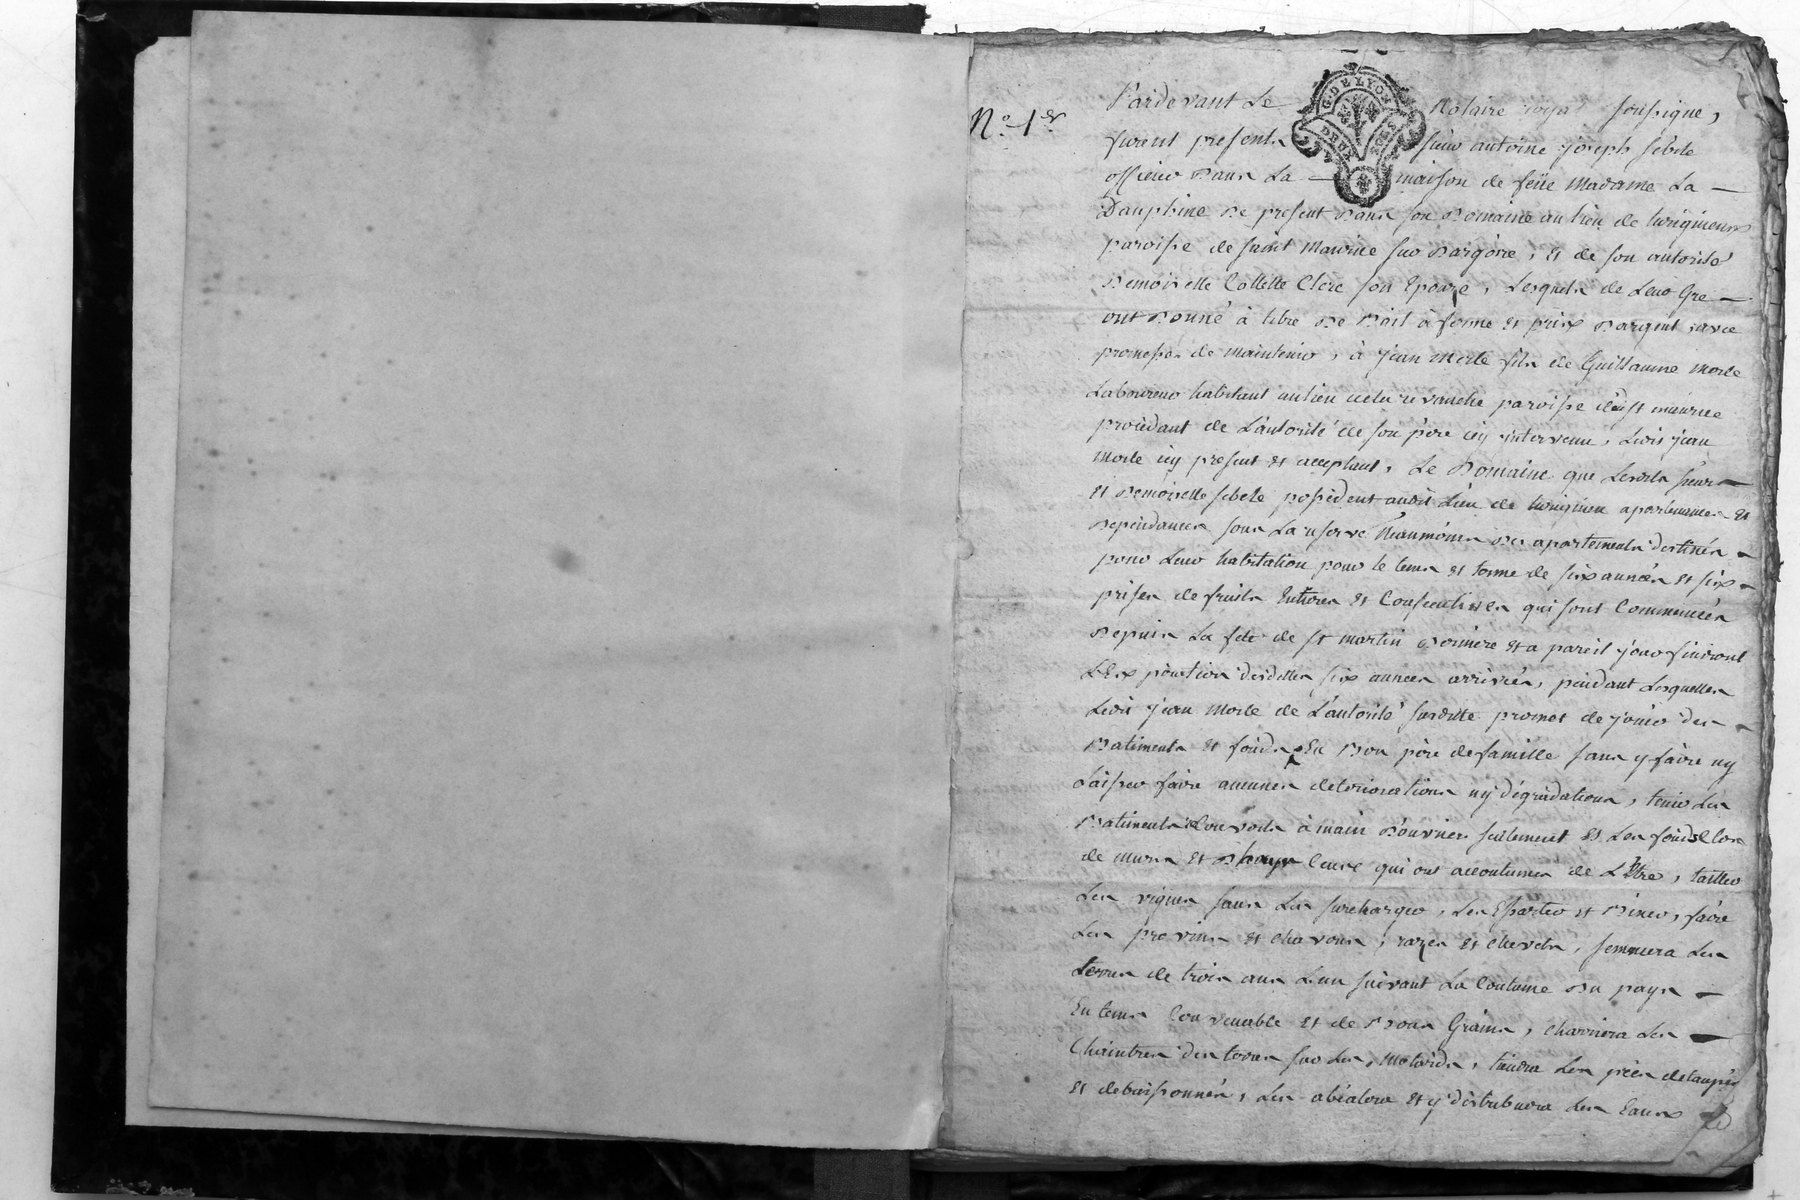 N.º 1.er
Pardevant Le Notaire royal soussigné,
G. DE LYON
DEUX SOLS
furent presents sieur antoine joseph sibele
officier dans La — maison de feüe Madame La —
Dauphine de present dans son Domaine au lieu de
paroisse de saint Maurice sur dargoire, et de son autorité
Demoiselle Collette Clerc son Epouze, Lesquels de Leur Gré —
ont donné à titre de Bail à ferme et prix d'argent avec
promesse de maintenir, à jean Morle fils de Guillaume morle
Laboureur habitant au lieu de la revanche paroisse dud st maurice
procedant de L'autorité de son père icy intervenu, Ledit jean
Morle icy present et acceptant, Le Domaine que Lesdits sieur —
et Demoiselle sibele possedent audit Lieu de apartenances et
dependances sous La reserve Neaumoins des apartements destinés —
pour Leur habitation pour le tems et terme de six années et six —
prises de fruits Entieres et Consecutives qui sont Commencées
depuis La fete de st martin derniere et a pareil jour finiront
L'Expiration desdittes six années arrivées, pendant Lesquelles
Ledit jean Morle de L'autorité susditte promet de jouir des —
Batiments et fonds En Bon père de famille sans y faire ny
Laisser faire aucunes deteriorations ny dégradations, tenir Les
Batiments Couverts à main d'ouvrier seulement et Les fonds Clos
de murs et D'hayes Ceux qui ont accoutumés de L'Etre, tailler
Les vignes sans Les surcharger, Les Essarter et Biner, faire
Les provins et chevons, razes et chevets, semmera Les
terres de trois ans L'un suivant La Coutume du pays —
En tems Convenable et de Bons Grains, charriera Les —
Chaintres des terres sur Les, tiendra Les prés detaupés
et debuissonnés, Les abéalera et y distribuera Les Eaux